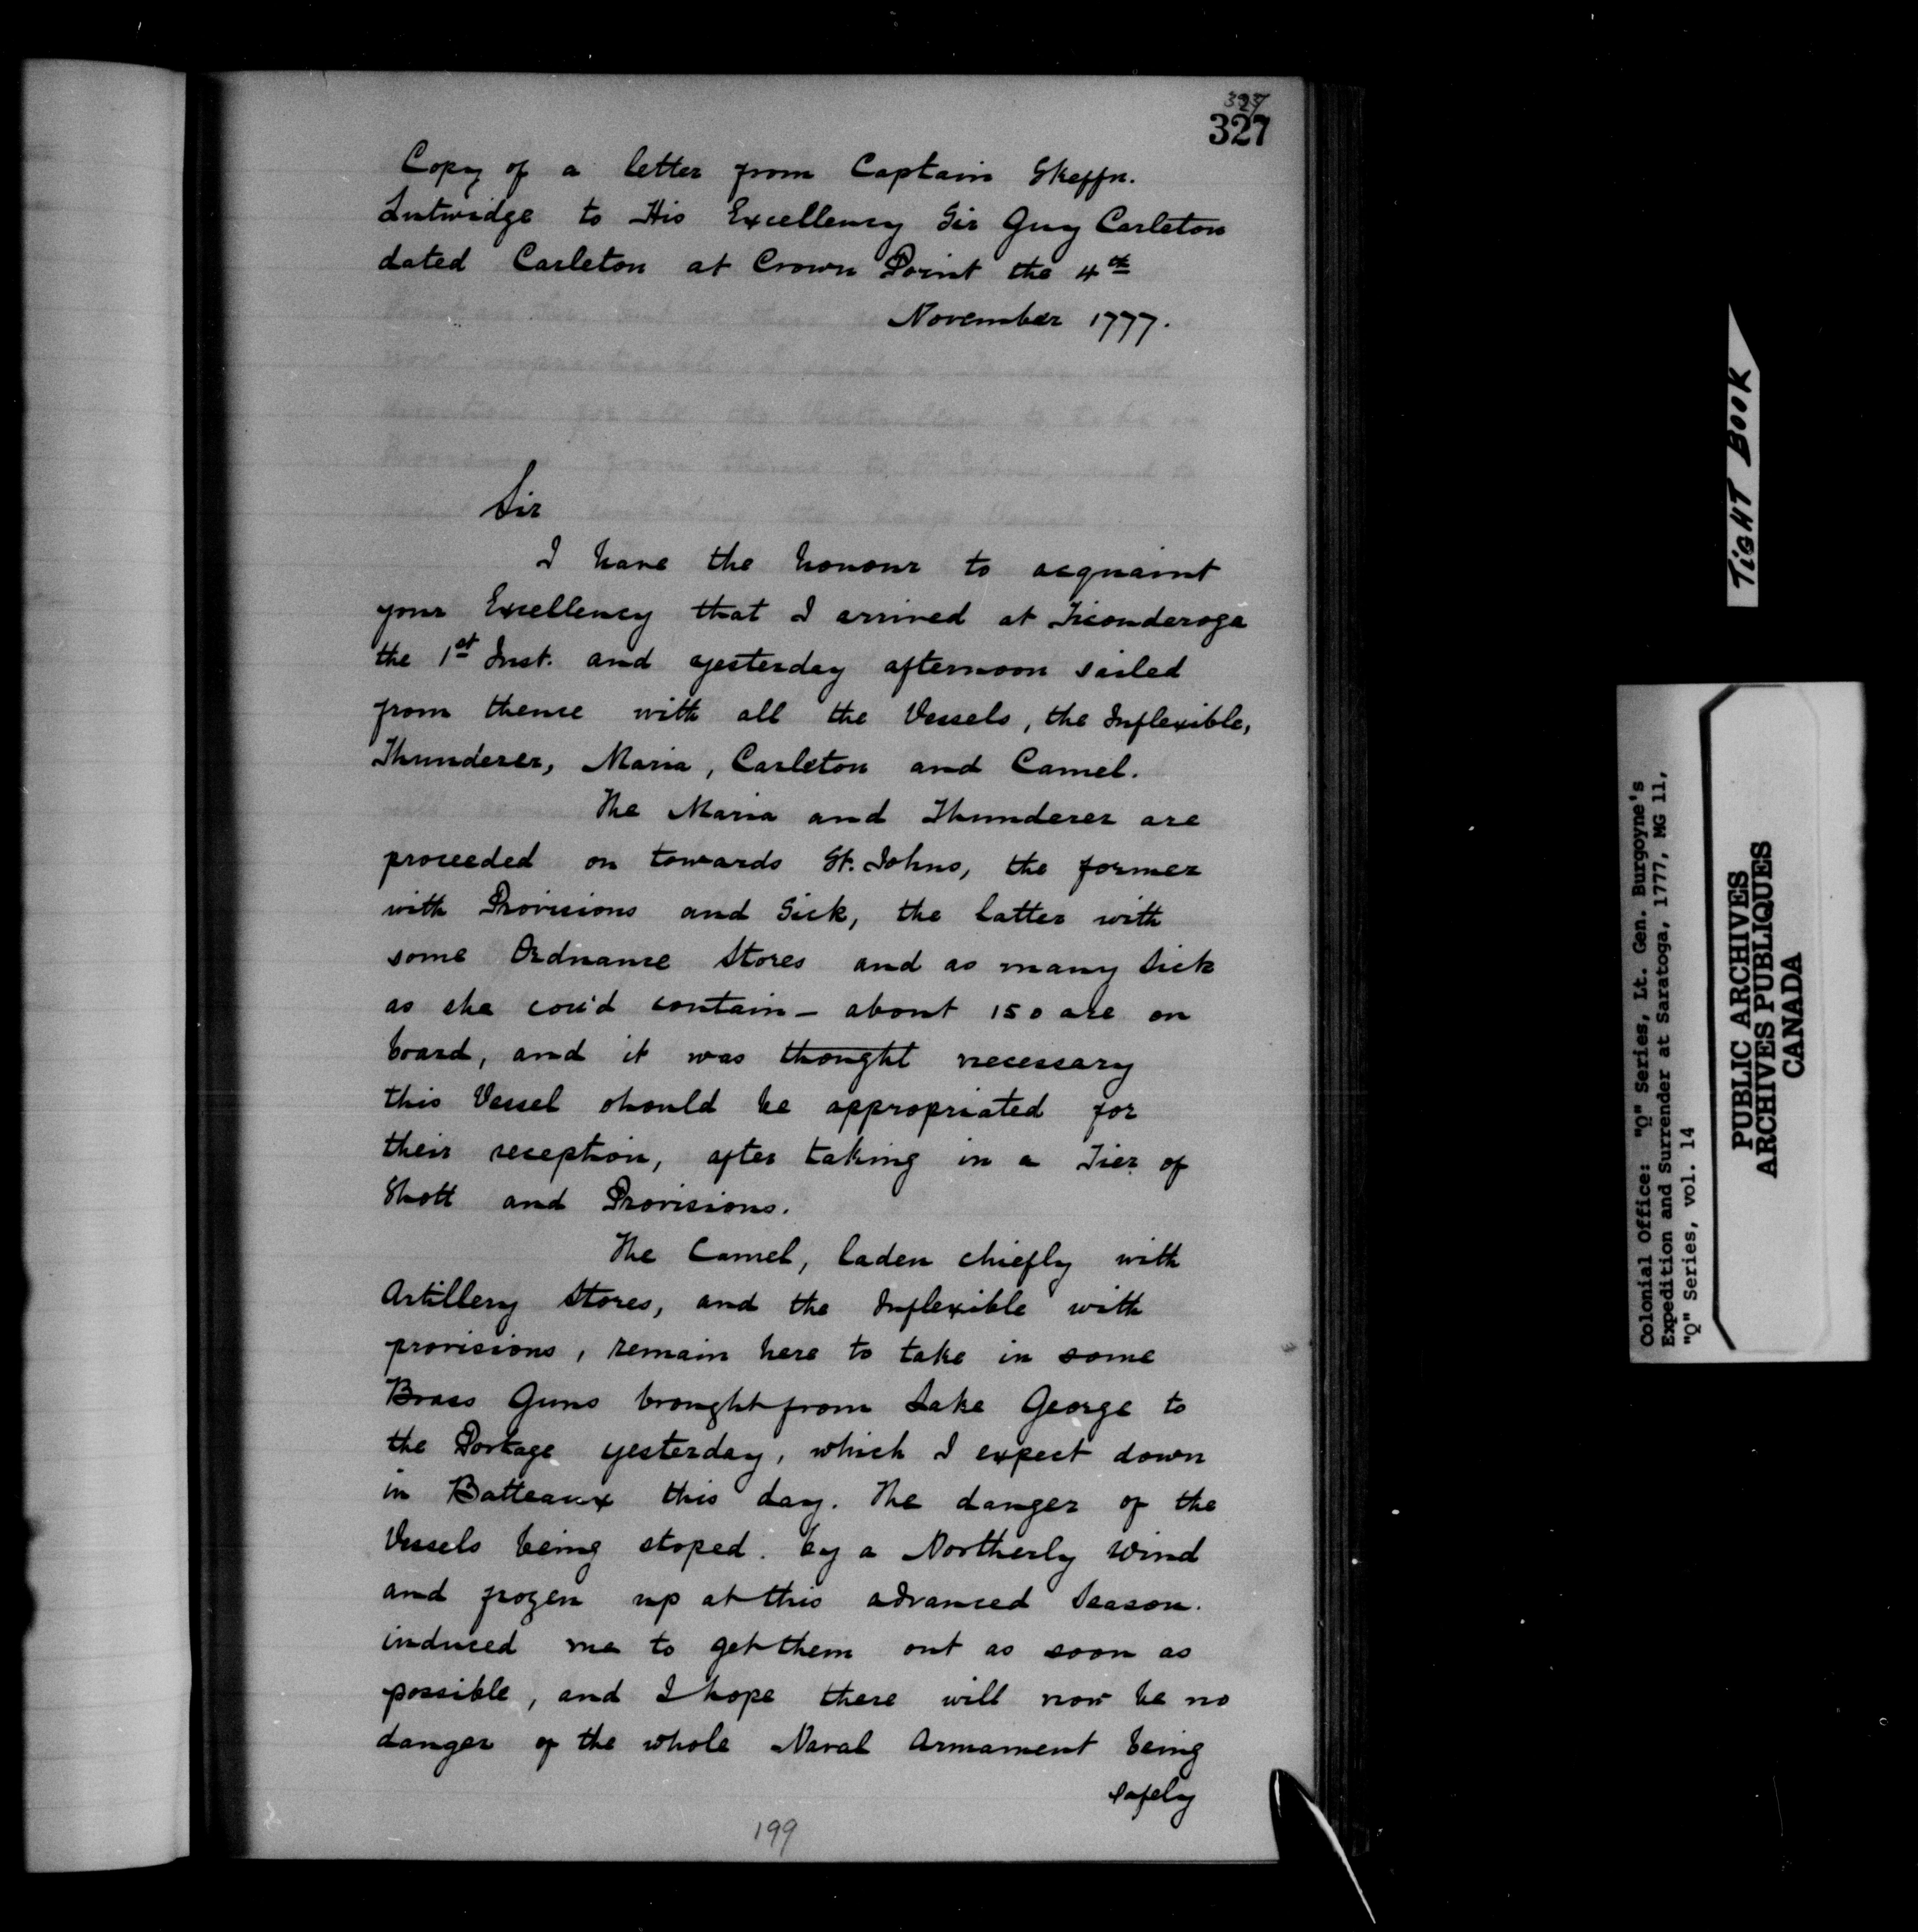 327
327
Copy of a letter from Captain Skeffn.
Lutwidge to His Excellency Sir Guy Carleton
dated Carleton at Crown Point the 4th
November 1777.
Sir
I have the honour to acquaint
your Excellency that I arrived at Ticonderoga
the 1st Inst. and yesterday afternoon sailed
from thence with all the Vessels, the Inflexible,
Thunderer, Maria, Carleton and Camel.
The Maria and Thunderer are
proceeded on towards St. Johns, the former
with Provisions and Sick, the latter with
some Ordnance Stores and as many Sick
as she cou'd contain - about 150 are on
board, and it was thought necessary
this Vessel should be appropriated for
their reception, after taking in a Tier of
Shott and Provisions.
The Camel, laden chiefly with
Artillery Stores, and the Inflexible with
provisions, remain here to take in some
Brass Guns brought from Lake George to
the Portage yesterday, which I expect down
in Batteaux this day. The danger of the
Vessels being stoped. by a Northerly Wind
and frozen up at this advanced Season.
induced me to get them out as soon as
possible, and I hope there will now be no
danger of the whole Naval Armament being
safely
199
TIGHT BOOK
Colonial Office: "Q" Series, Lt. Gen. Burgoyne's
Expedition and Surrender at Saratoga, 1777, MG 11,
"Q" Series, vol. 14
PUBLIC ARCHIVES
ARCHIVES PUBLIQUES
CANADA